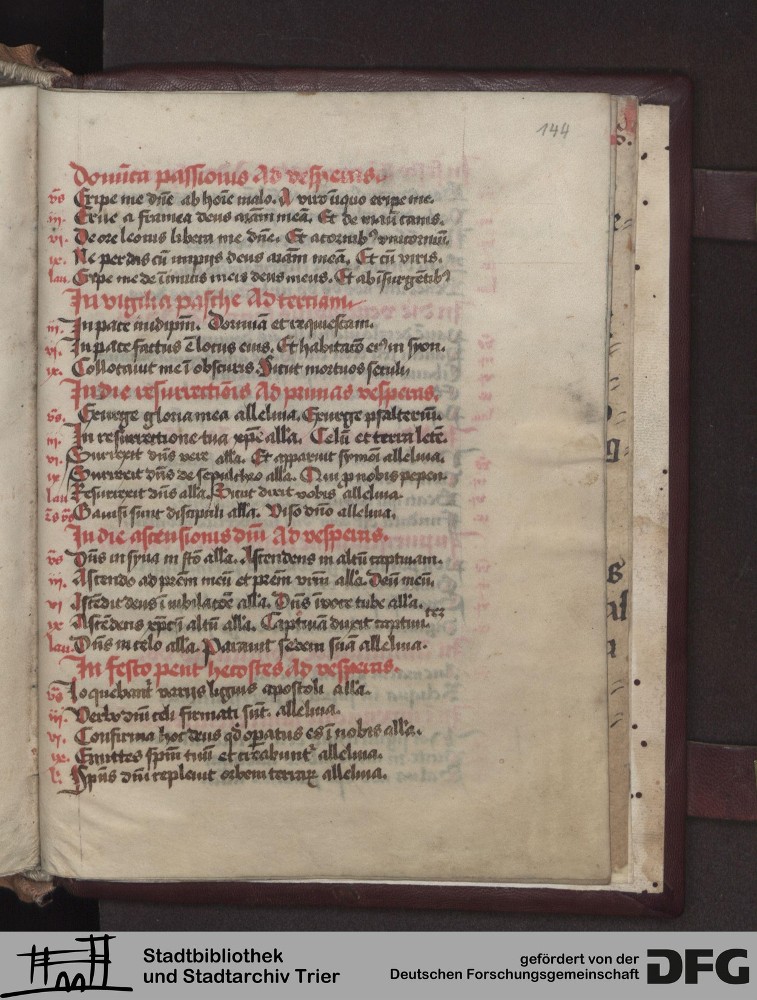 144
Domīca passionis Ad vesperas.
vs̄ Eripe me dn̄e ab hoīe malo. A viro iniquo eripe me.
iij. Erue a framea deus aīam meā. Et de manu canis.
vj. De ore leonis libera me dn̄e. Et a cornibꝰ vnicorniū.
ix. Ne perdas cū impijs deus aīam meā. Et cū viris.
lau. Eripe me de īimicis meis deus meus. Et ab īsurgētibꝰ
In vigilia pasche Ad terciam.
iij. In pace in idipm̄. Dormiā et requiescam.
vj. In pace factus ē locus eius. Et habitacō eiꝰ in syon.
ix. Collocauit me ī obscuris. Sicut mortuos seculi
In die resurrectiōis Ad primas vesperas.
vs̄. Exurge gloria mea alleluia. Exurge psalteriū.
iij. In resurrectione tua xp̄e all'a. Celū et terra lete.
vj. Surrexit dn̄s vere all'a. Et apparuit symoī alleluia.
ix Surrexit dn̄s de sepulchro all'a. Qui p nobis pepen.
lau Resurrexit dn̄s all'a. Sicut dixit vobis alleluia.
Gauisi sunt discipuli all'a. Viso dn̄o alleluia.
In die ascensionis dn̄i Ad vesperas.
vs̄ Dn̄s in syna in scō all'a. Ascendens in altū captiuam.
iij. Ascendo ad prēm meū et prēm vrm̄ all'a. Deū meū.
vj Ascēdit deus ī iubilacōe all'a. Dn̄s ī voce tube all'a.
ix Ascēdens xp̄c ī altū all'a. Captiuā duxit captiui
ter
lau. Dn̄s in celo all'a. Parauit sedem suā alleluia.
In festo pent hecostes Ad vesperas.
vs̄ Loquebant᷑ varijs liguis apostoli all'a.
iij. Verbo dn̄i celi firmati sūt. alleluia.
vj. Confirma hoc deus qd̄ opatus es ī nobis all'a.
ix. Emittes spm̄ tuū et creabunt᷑ alleluia.
l: Spūs dn̄i repleuit orbem terrarꝝ alleluia.
Stadtbibliothek
und Stadtarchiv Trier
gefördert von der
Deutschen Forschungsgemeinschaft
DFG